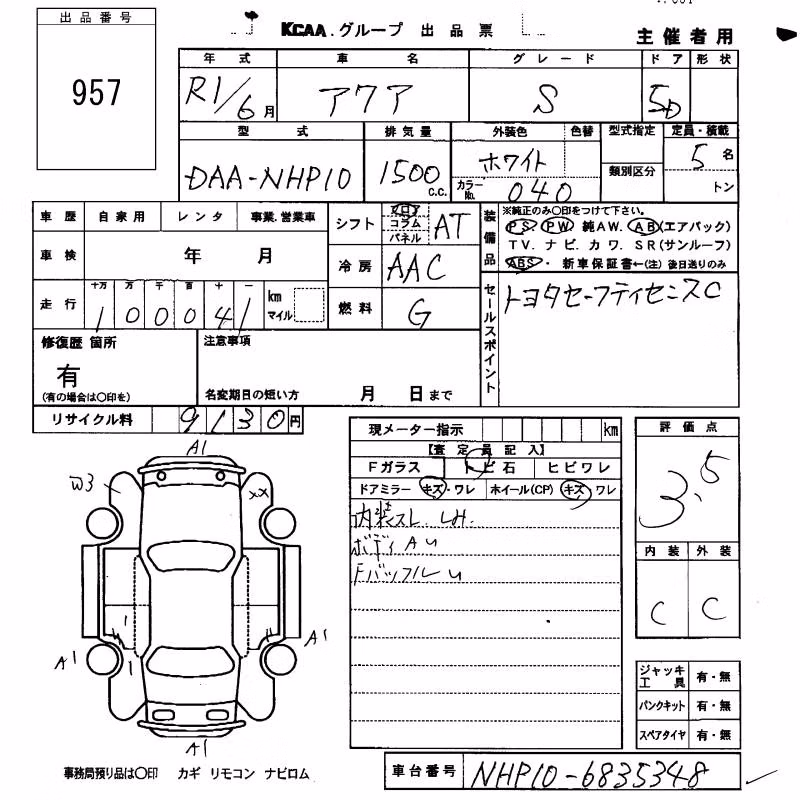 出品番号
957
KCAA.グループ 出品票
主催者用
年式 車名 グレード ドア 形状
R1/6月 アクア S 5D
型式 排気量 外装色 色替 型式指定 定員・積載
DAA-NHP10 1500 c.c. ホワイト 類別区分 5名
カラーNo. 040 トン
車歴 自家用 レンタ 事業.営業車
シフト フロア コラム パネル AT
装備品 ※純正のみ○印をつけて下さい。
PS PW 純AW. AB(エアバック)
TV. ナビ. カワ. SR(サンルーフ)
ABS・ 新車保証書←(注) 後日送りのみ
車検 年 月
冷房 AAC
走行 十万 万 千 百 十 一 km マイル
100041
燃料 G
セールスポイント
トヨタセーフティセンスC
修復歴 箇所
有
(有の場合は○印を)
注意事項
名変期日の短い方 月 日まで
リサイクル料 9130円
現メーター指示 km
【査定員記入】
Fガラス トビ石 ヒビワレ
ドアミラー キズ・ワレ ホイール(CP) キズ ワレ
内装スレ LH.
ボディ A U
Fバッフル U
評価点
3.5
内装 外装
C C
A1
W3
XX
A1
A1
A1
ジャッキ工具 有・無
パンクキット 有・無
スペアタイヤ 有・無
事務局預り品は○印 カギ リモコン ナビロム
車台番号 NHP10-6835348